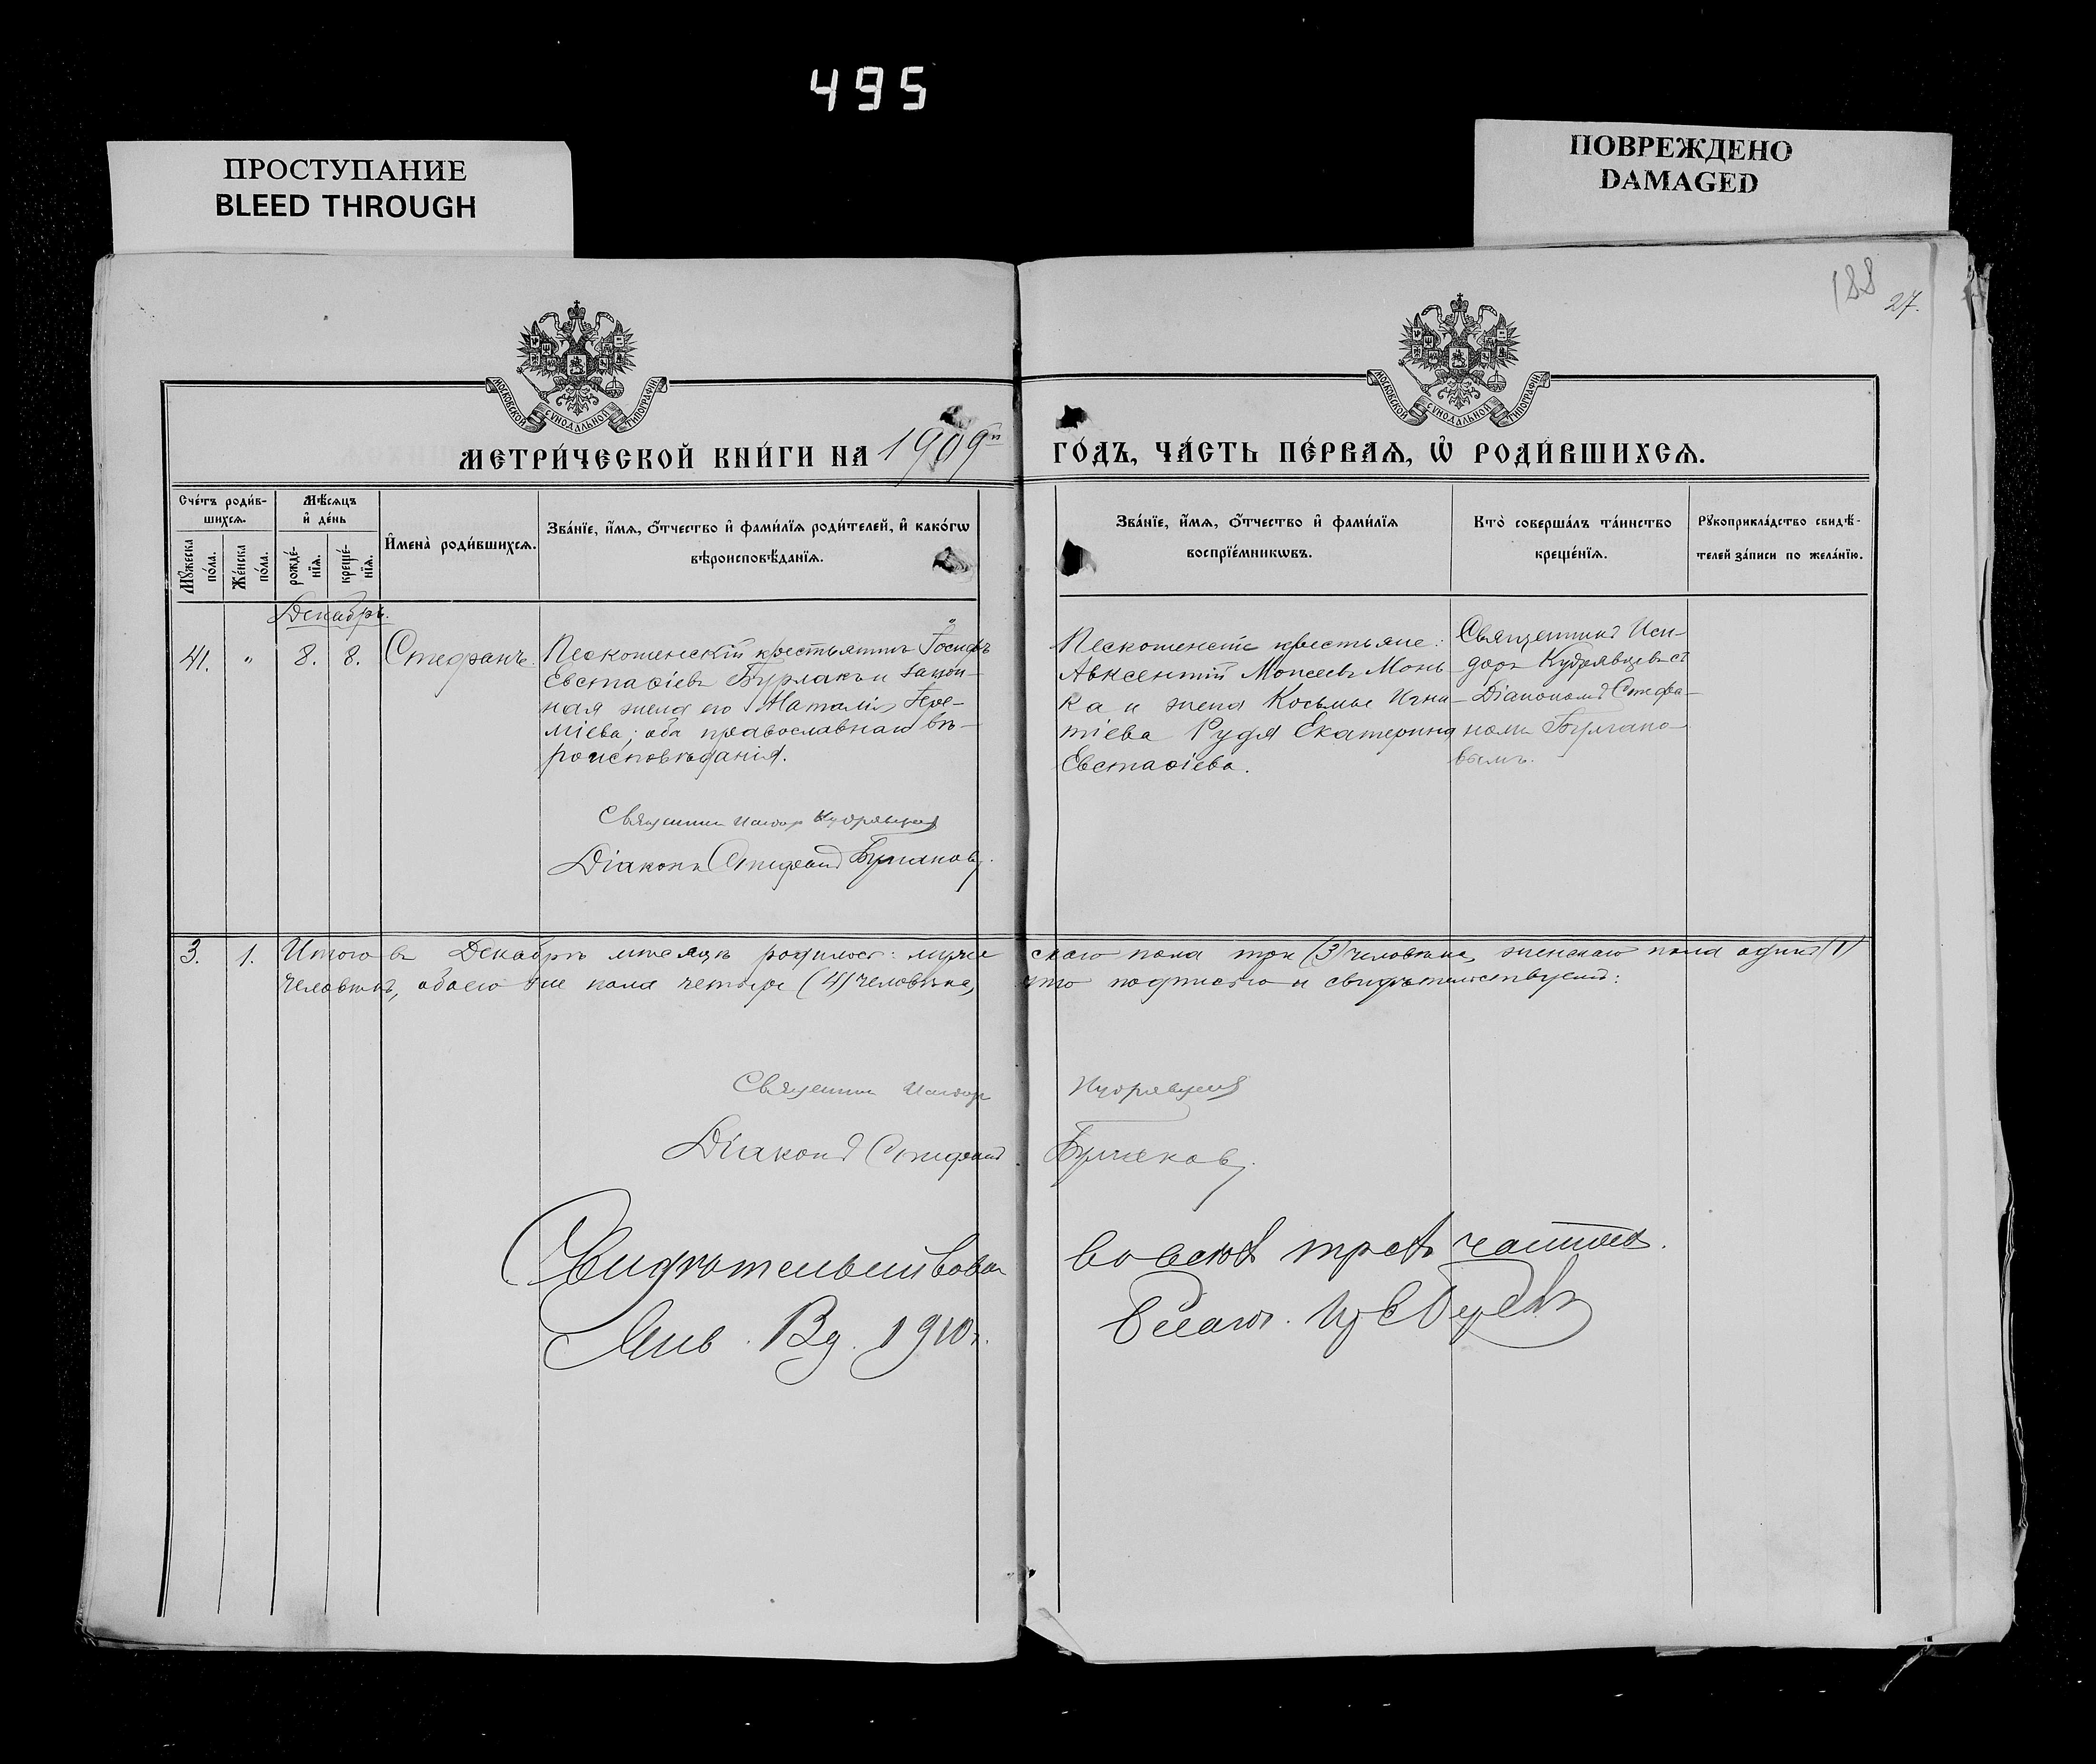 495
ПРОСТУПАНИЕ
BLEED THROUGH
ПОВРЕЖДЕНО
DAMAGED
188
27.
МОСКОВСКОЙ СѴНОДАЛЬНОЙ ТИПОГРАФІИ
МОСКОВСКОЙ СѴНОДАЛЬНОЙ ТИПОГРАФІИ
МЕТРИ́ЧЕСКОЙ КНИ́ГИ НА 1909й ГО́ДЪ, ЧА́СТЬ ПЕ́РВАѦ, Ѡ҆ РОДИ́ВШИХСѦ.
Сче́тъ роди́в-
шихсѧ.
Мꙋ́жеска
по́ла.
Же́нска
по́ла.
Мѣ́сѧцъ
и҆ де́нь
рожде́-
нїѧ.
креще́-
нїѧ.
И҆мена̀ роди́вшихсѧ.
Зва́нїе, и҆́мѧ, ѻ҆́тчество и҆ фами́лїѧ роди́телей, и҆ како́гѡ
вѣроисповѣ́данїѧ.
Зва́нїе, и҆́мѧ, ѻ҆́тчество и҆ фами́лїѧ
воспрїе́мникѡвъ.
Кто̀ соверша́лъ та́инство
креще́нїѧ.
Рꙋкоприкла́дство свидѣ́-
телей за́писи по жела́нїю.
Декабрь.
41.
"
8.
8.
Стефанъ.
Пескошенскій крестьянинъ Іосифъ
Евстафіевъ Бурлакъ и закон-
ная жена его Наталія Іере-
міева; оба православнаго вѣ-
роисповѣданія.
Пескошенскіе крестьяне:
Авксентій Моисеевъ Монь-
ка и жена Косьмы Игна-
тіева Рудя Екатерина
Евстафіева.
Священникъ Иси-
доръ Кудрявцевъ съ
Діакономъ Стефа-
номъ Булгако-
вымъ.
Священникъ Исидоръ Кудрявцевъ
Діаконъ Стефанъ Булгаковъ.
3.
1.
Итого въ Декабрѣ мѣсяцѣ родилось: мужескаго пола три (3) человѣка, женскаго пола одинъ (1)
человѣкъ, обоего же пола четыре (4) человѣка, что подписью и свидѣтельствуемъ:
Священникъ Исидоръ Кудрявцевъ
Діаконъ Стефанъ Булгаковъ.
Свидѣтельствовалъ во всѣхъ трехъ частяхъ.
1910г.